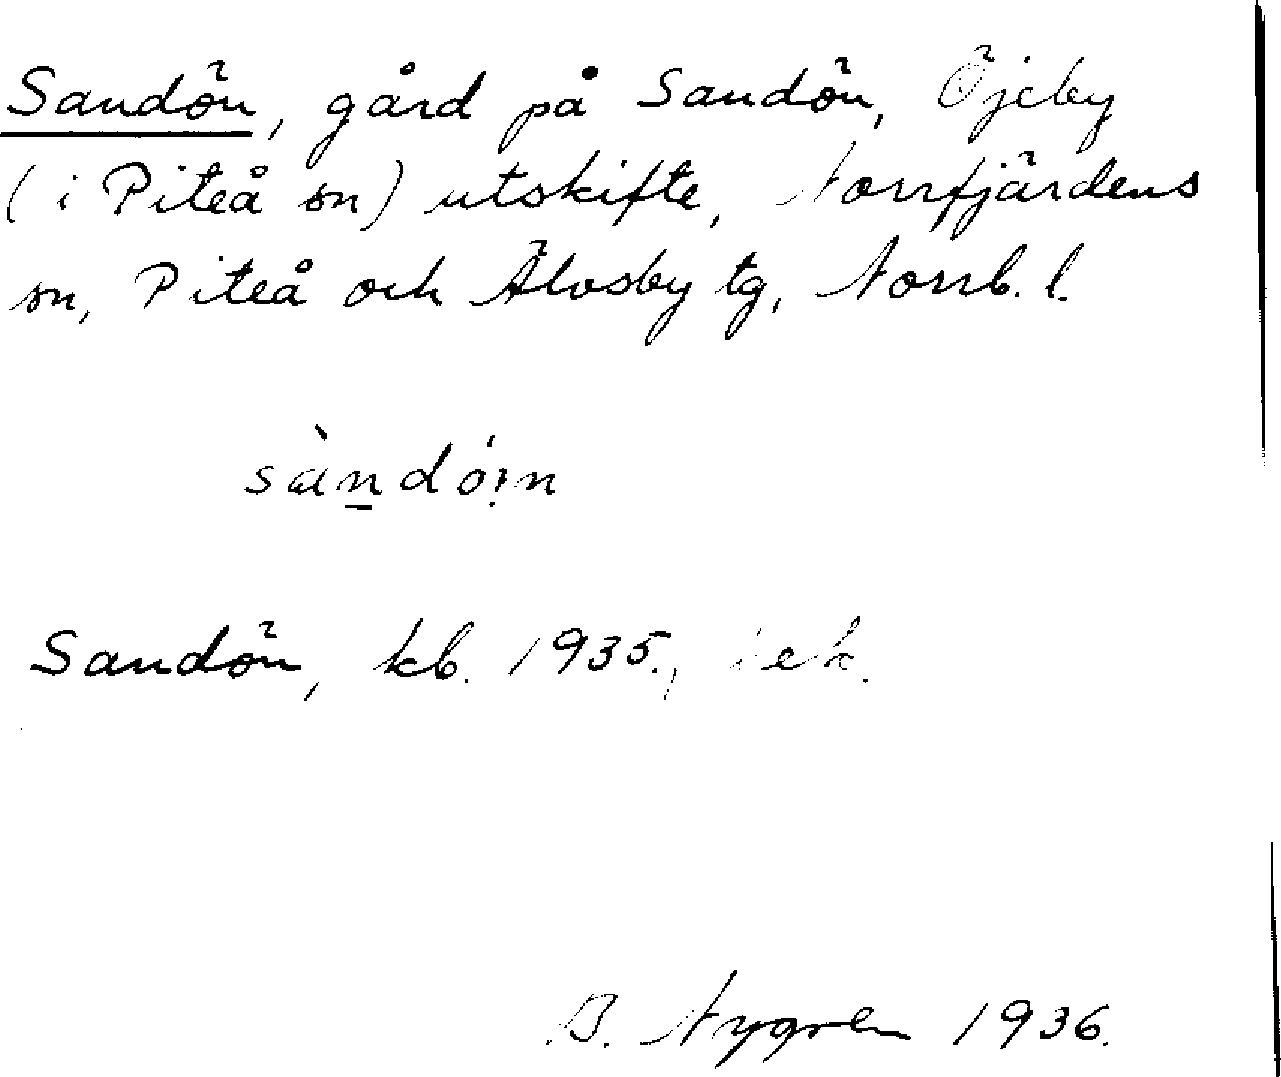 Sandön, gård på Sandön, Öjeby
(i Piteå sn) utskifte, Norrfjärdens
sn, Piteå och Älvsby tg, Norrb. l.
sàn̲dó:n
Sandön, kb. 1935.,
B. Nygren 1936.